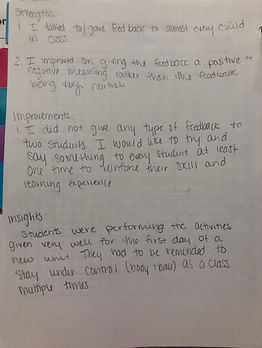 Strengths:
1. I talked to/gave feedback to almost every child
in class.
2. I improved on giving the feedback a positive or
negative meaning rather than the feedback
being very neutral
Improvements:
1. I did not give any type of feedback to
two students. I would like to try and
say something to every student at least
one time to reinforce their skill and
learning experience
Insights:
Students were performing the activities
given very well for the first day of a
new unit. They had to be reminded to
stay under control (body + ball) as a class
multiple times.